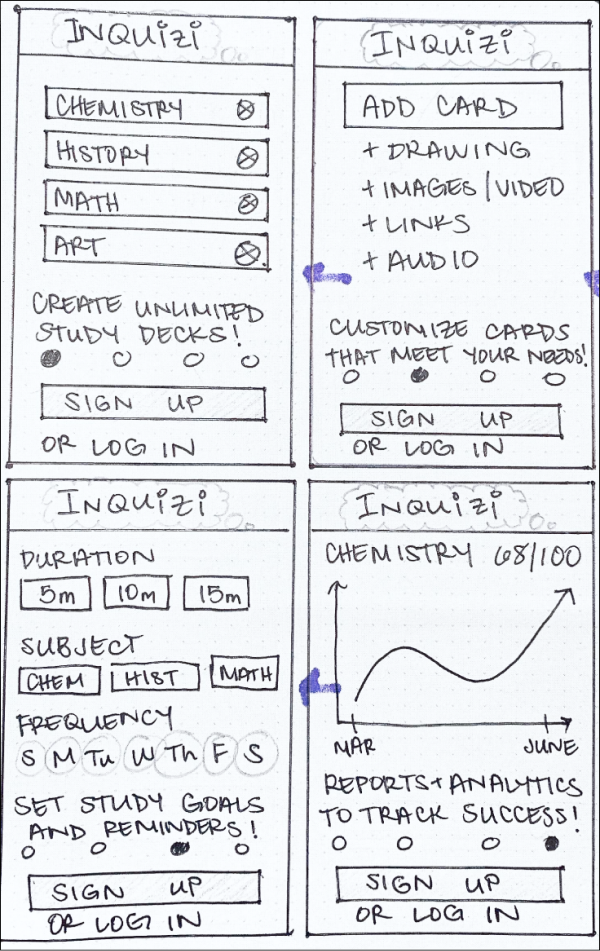 INQUiZi
CHEMISTRY
HISTORY
MATH
ART
CREATE UNLIMITED
STUDY DECKS!
SIGN UP
OR LOG IN
INQUiZi
ADD CARD
+ DRAWING
+ IMAGES/VIDEO
+ LINKS
+ AUDIO
CUSTOMIZE CARDS
THAT MEET YOUR NEEDS!
SIGN UP
OR LOG IN
INQUiZi
DURATION
5m 10m 15m
SUBJECT
CHEM HIST MATH
FREQUENCY
S M Tu W Th F S
SET STUDY GOALS
AND REMINDERS!
SIGN UP
OR LOG IN
INQUiZi
CHEMISTRY 68/100
MAR JUNE
REPORTS + ANALYTICS
TO TRACK SUCCESS!
SIGN UP
OR LOG IN